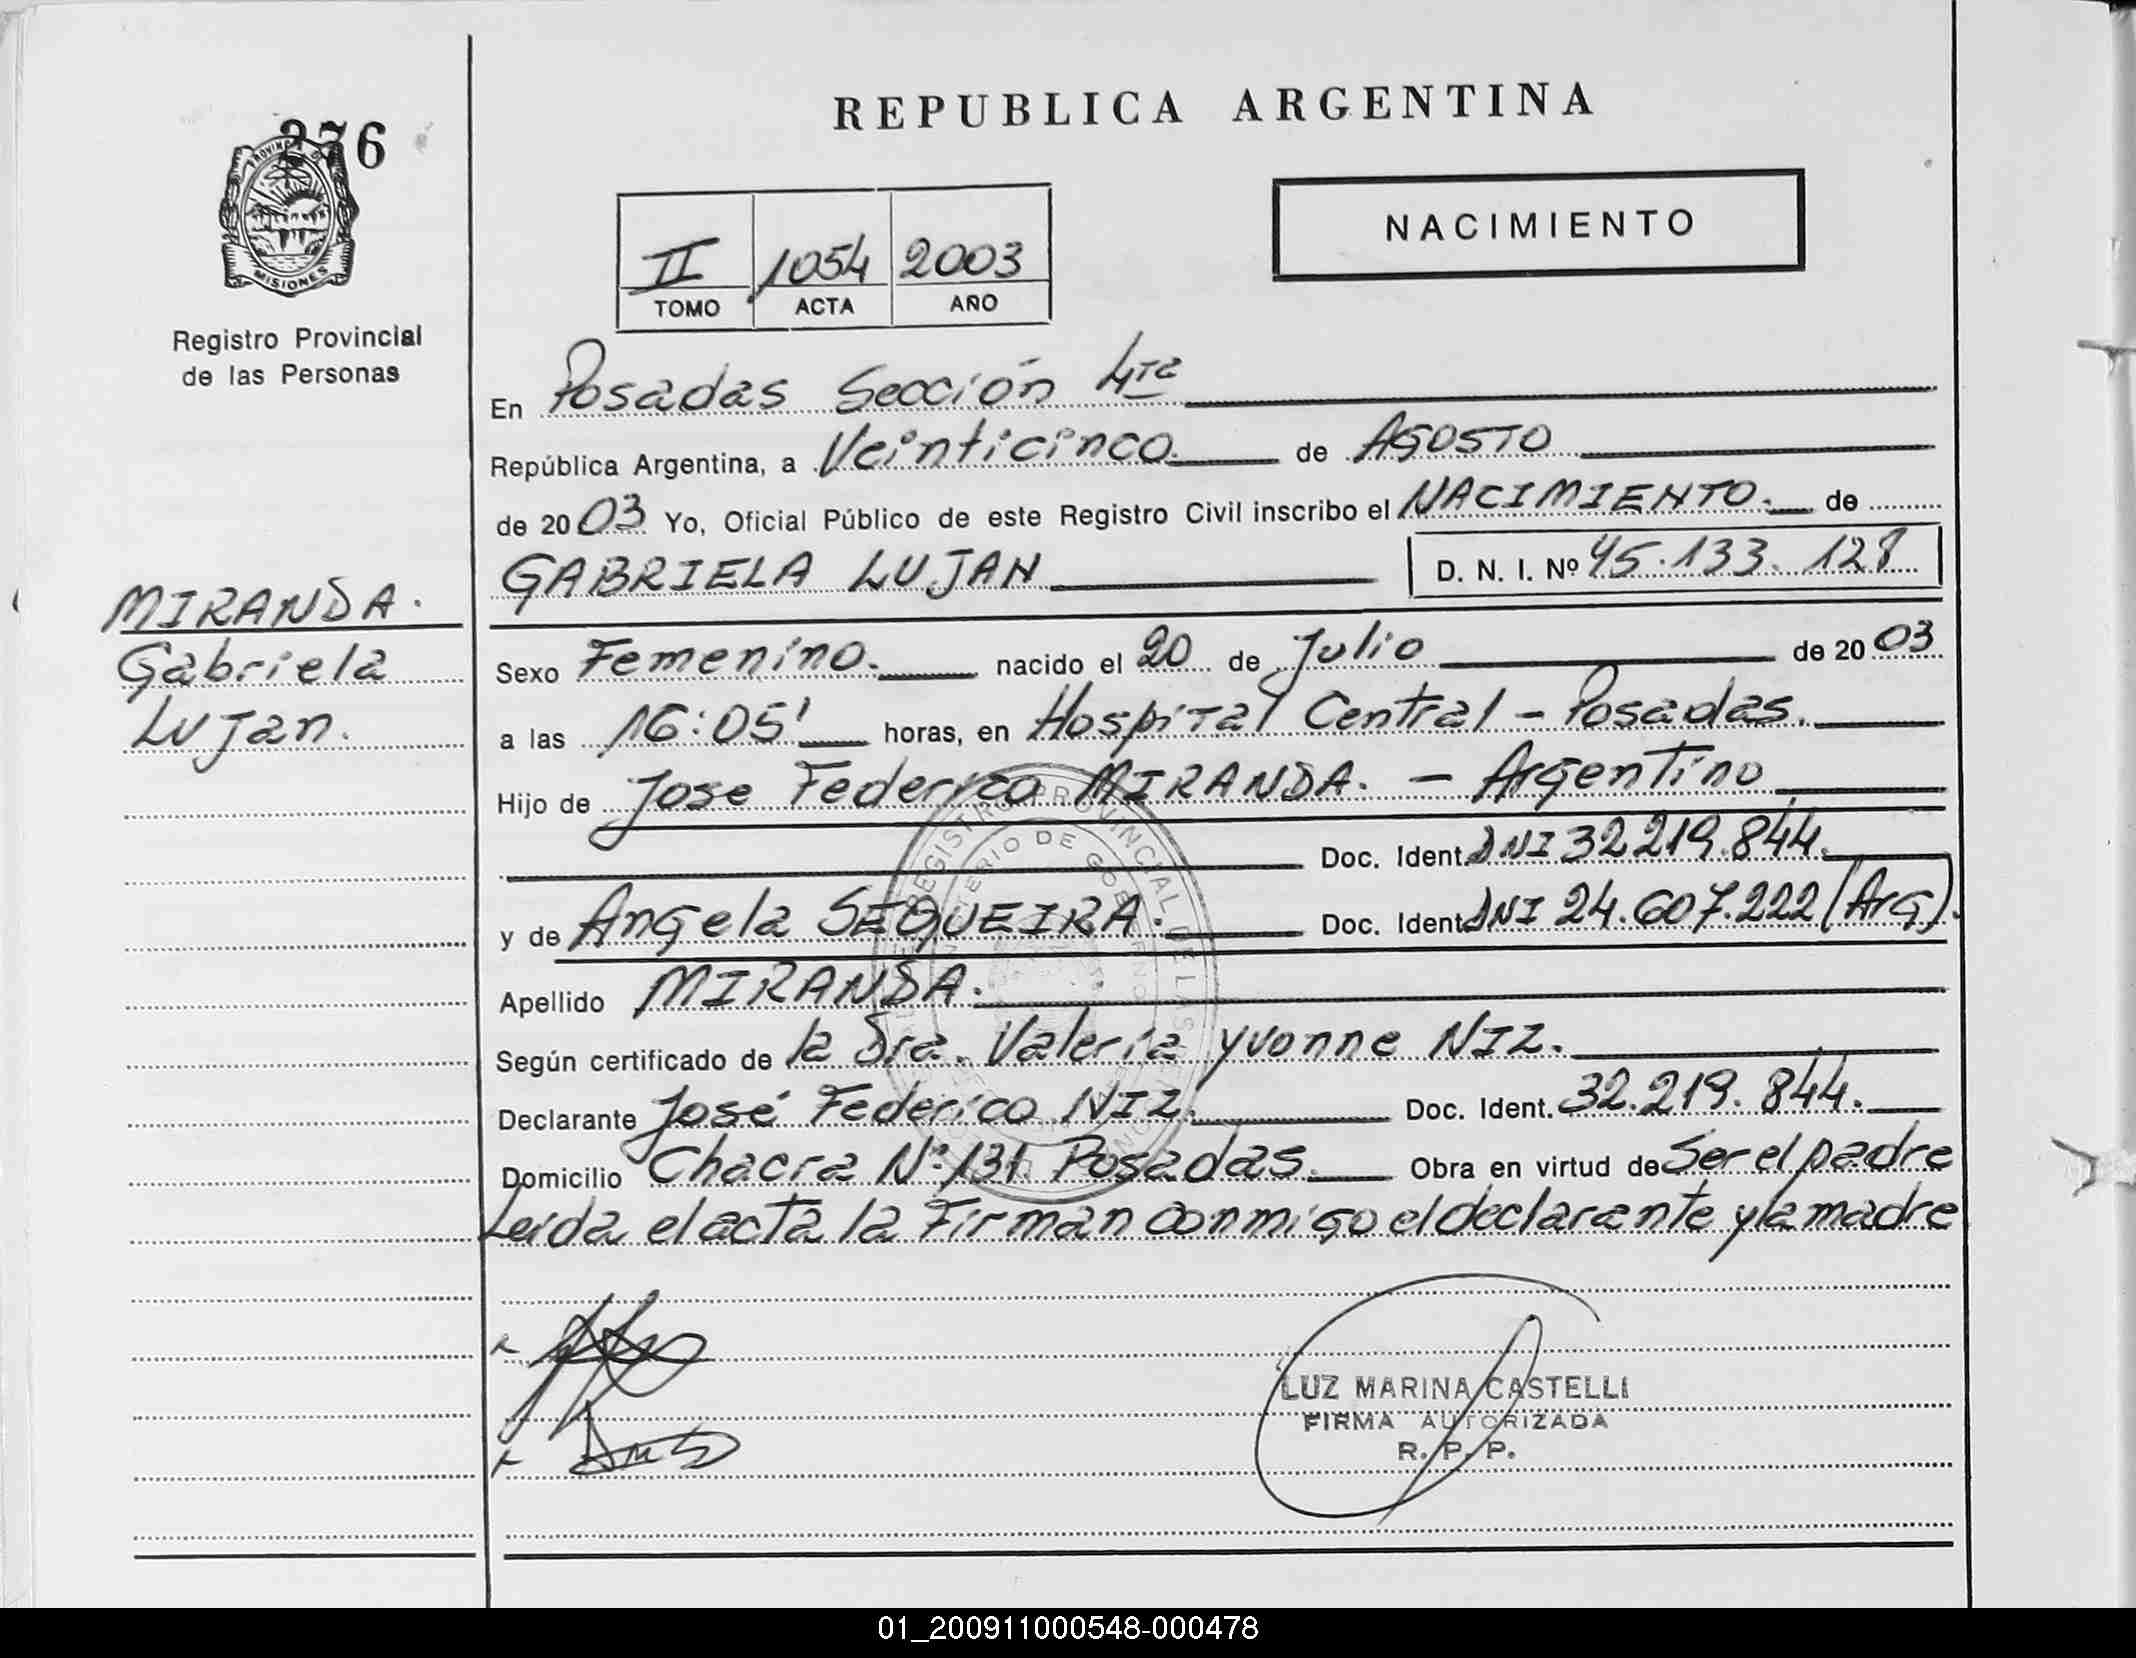 REPUBLICA ARGENTINA
376
PROVINCIA DE
MISIONES
Registro Provincial
de las Personas
NACIMIENTO
II 1054 2003
TOMO ACTA AÑO
En Posadas Sección 4ta
República Argentina, a Veinticinco. de AGOSTO
de 2003 Yo, Oficial Público de este Registro Civil inscribo el NACIMIENTO. de
GABRIELA LUJAN D. N. I. Nº 45.133.128
MIRANDA.
Gabriela
Lujan.
Sexo Femenino. nacido el 20 de Julio de 2003
a las 16:05' horas, en Hospital Central - Posadas.
Hijo de Jose Federico MIRANDA. - Argentino
Doc. Ident. DNI 32.219.844.
y de Angela SEQUEIRA. Doc. Ident. DNI 24.607.222 (Arg).
Apellido MIRANDA.
Según certificado de la Dra. Valeria Yvonne NIZ.
Declarante José Federico NIZ. Doc. Ident. 32.219.844.
Domicilio Chacra Nº 131 Posadas. Obra en virtud de Ser el padre
Leída el acta la Firman conmigo el declarante y la madre
REGISTRO PROVINCIAL DE LAS
MINISTERIO DE GOBIERNO
LUZ MARINA CASTELLI
FIRMA AUTORIZADA
R. P. P.
01_200911000548-000478